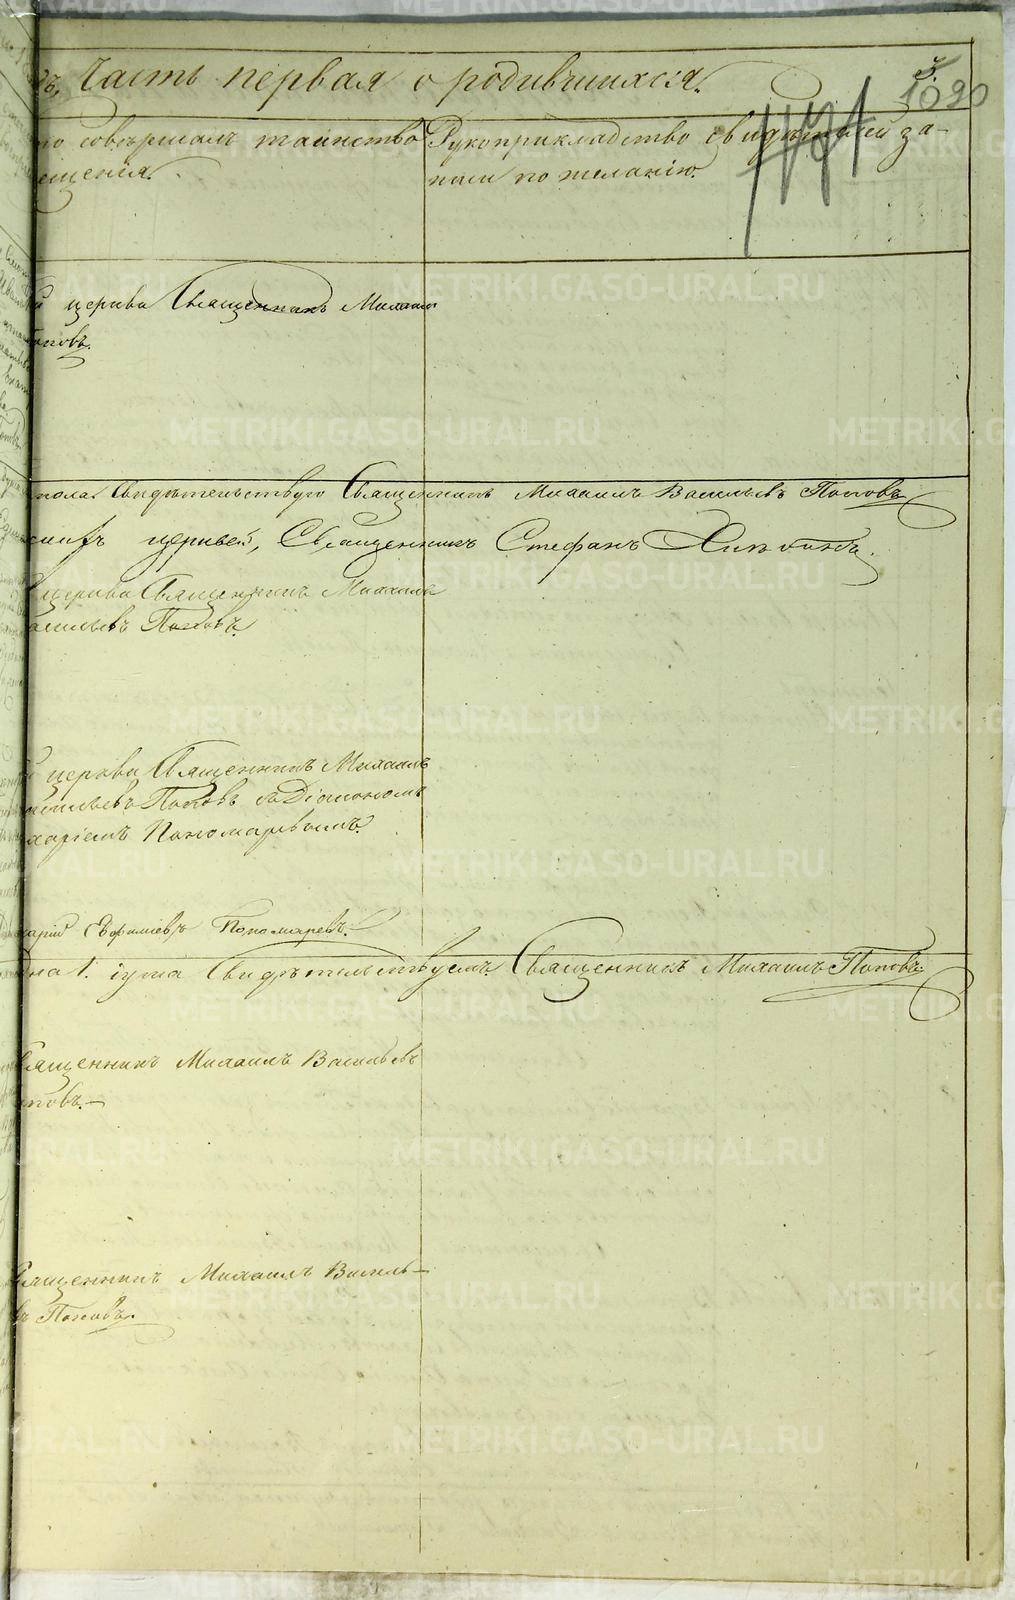 Часть первая о родившихся.
1090
совершалъ таинство
Рукоприкладство свидѣтелей за-
писи по желанію.
церкви Священникъ Михаилъ
поповъ.
пола. Свидѣтельствую Священникъ Михаилъ Васильевъ Поповъ
церквей, Священникъ Стефанъ
церкви Священникъ Михаилъ
асильевъ Поповъ.
церкви Священникъ Михаилъ
асильевъ Поповъ съ Діакономъ
харіемъ Пономаревымъ.
харій Ефимiевъ Пономаревъ.
Свидѣтельствуемъ Священникъ Михаилъ Поповъ
вященникъ Михаилъ Васильевъ
оповъ.—
вященникъ Михаилъ Василь-
въ Поповъ.
METRIKI.GASO-URAL.RU